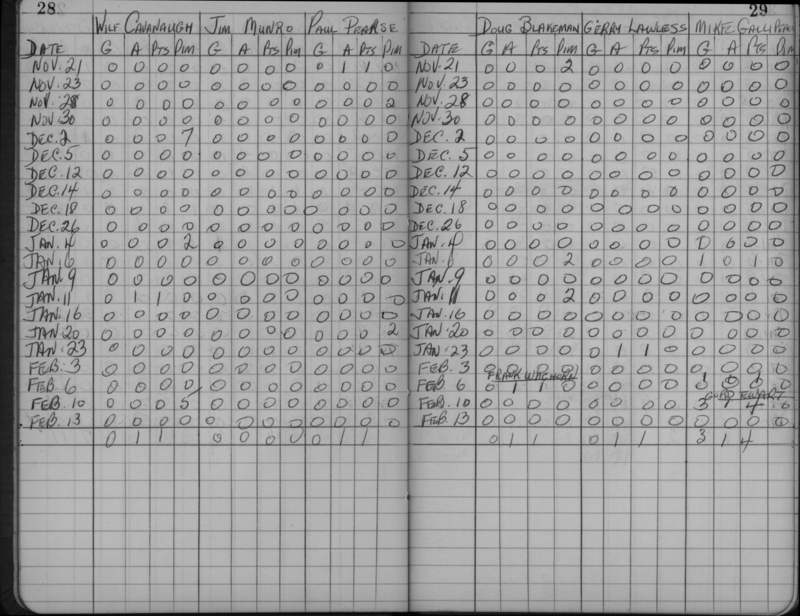 28
WILF CAVANAUGH JIM MUNRO PAUL PEARSE
DATE G A Pts Pim G A Pts Pim G A Pts Pim
NOV. 21 0 0 0 0 0 0 0 0 0 1 1 0
NOV. 23 0 0 0 0 0 0 0 0 0 0 0 0
NOV. 28 0 0 0 0 0 0 0 0 0 0 0 2
NOV. 30 0 0 0 0 0 0 0 0 0 0 0 0
DEC. 2 0 0 0 7 0 0 0 0 0 0 0 0
DEC. 5 0 0 0 0 0 0 0 0 0 0 0 0
DEC. 12 0 0 0 0 0 0 0 0 0 0 0 0
DEC. 14 0 0 0 0 0 0 0 0 0 0 0 0
DEC. 18 0 0 0 0 0 0 0 0 0 0 0 0
DEC. 26 0 0 0 0 0 0 0 0 0 0 0 0
JAN. 4 0 0 0 2 0 0 0 0 0 0 0 0
JAN. 6 0 0 0 0 0 0 0 0 0 0 0 0
JAN. 9 0 0 0 0 0 0 0 0 0 0 0 0
JAN. 11 0 1 1 0 0 0 0 0 0 0 0 0
JAN. 16 0 0 0 0 0 0 0 0 0 0 0 0
JAN. 20 0 0 0 0 0 0 0 0 0 0 0 2
JAN. 23 0 0 0 0 0 0 0 0 0 0 0 0
FEB. 3 0 0 0 0 0 0 0 0 0 0 0 0
FEB. 6 0 0 0 0 0 0 0 0 0 0 0 0
FEB. 10 0 0 0 5 0 0 0 0 0 0 0 0
FEB. 13 0 0 0 0 0 0 0 0 0 0 0 0
0 1 1 0 0 0 0 0 1 1
29
DOUG BLAKEMAN GERRY LAWLESS MIKE GALLIPEAU
DATE G A Pts Pim G A Pts Pim G A Pts Pim
NOV. 21 0 0 0 2 0 0 0 0 0 0 0 0
NOV. 23 0 0 0 0 0 0 0 0 0 0 0 0
NOV. 28 0 0 0 0 0 0 0 0 0 0 0 0
NOV. 30 0 0 0 0 0 0 0 0 0 0 0 0
DEC. 2 0 0 0 0 0 0 0 0 0 0 0 0
DEC. 5 0 0 0 0 0 0 0 0 0 0 0 0
DEC. 12 0 0 0 0 0 0 0 0 0 0 0 0
DEC. 14 0 0 0 0 0 0 0 0 0 0 0 0
DEC. 18 0 0 0 0 0 0 0 0 0 0 0 0
DEC. 26 0 0 0 0 0 0 0 0 0 0 0 0
JAN. 4 0 0 0 0 0 0 0 0 0 0 0 0
JAN. 0 0 0 2 0 0 0 0 1 0 1 0
JAN. 9 0 0 0 0 0 0 0 0 0 0 0 0
JAN. 11 0 0 0 2 0 0 0 0 0 0 0 0
JAN. 16 0 0 0 0 0 0 0 0 0 0 0 0
JAN. 20 0 0 0 0 0 0 0 0 0 0 0 0
JAN. 23 0 0 0 0 0 1 1 0 0 0 0 0
FEB. 3 0 0 0 0 0 0 0 0 0 0 0 0
FRANK WAGHORN 1 0 1
FEB. 6 0 1 1 0 0 0 0 0 0 0 0 0
GORD
FEB. 10 0 0 0 0 0 0 0 0 3 1 4 0
FEB. 13 0 0 0 0 0 0 0 0 0 0 0 0
0 1 1 0 1 1 3 1 4